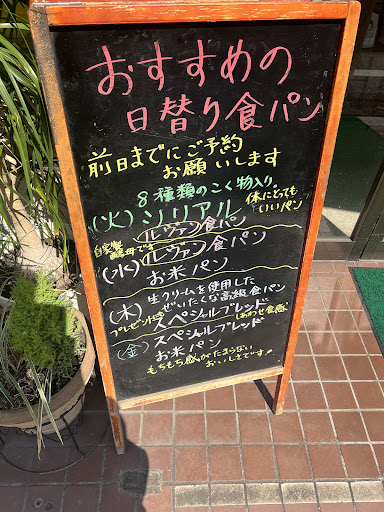 おすすめの
日替り食パン
前日までにご予約
お願いします
8種類のこく物入り。
(火)シリアル
体にとっても
いいパン
ルヴァン食パン
自家製
酵母です
(水)ルヴァン食パン
お米パン
(木)生クリームを使用した
ぜいたくな高級食パン
プレゼントにも
スペシャルブレッド
しあわせ食感
(金)スペシャルブレッド
お米パン
もちもち感がたまらない
おいしさです。